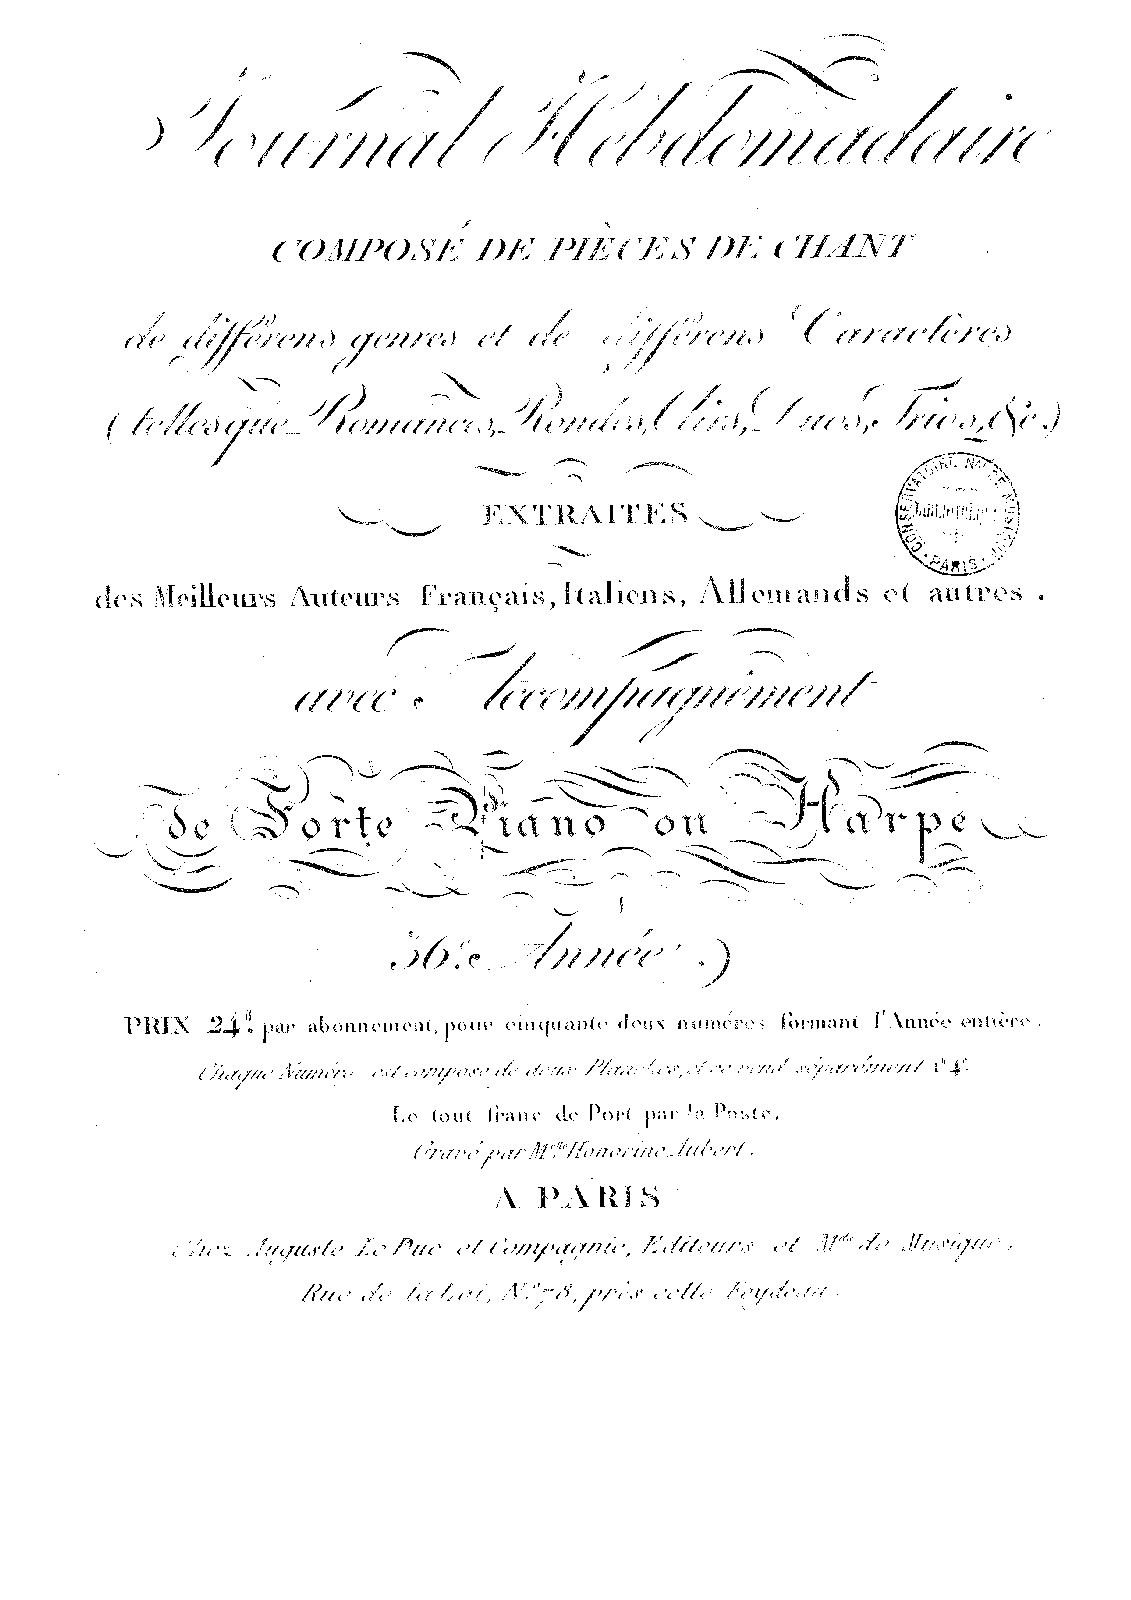 Journal Hebdomadaire
COMPOSÉ DE PIÈCES DE CHANT
de différens genres et de différens Caractères
(telles que Romances, Rondes, Airs, Duos, Trios, &c.)
EXTRAITES
CONSERVATOIRE NAL DE MUSIQUE
BIBLIOTHÈQUE
PARIS
des Meilleurs Auteurs Français, Italiens, Allemands et autres.
avec Accompagnement
de Forte Piano ou Harpe
36.e Année.)
PRIX 24.tt par abonnement, pour cinquante deux numéros formant l'Année entière.
Chaque Numéro est composé de deux Planches, et se vend séparément
Le tout franc de Port par la Poste.
Gravé par Melle Honorine Aubert.
A PARIS
Chez Auguste Le Duc et Compagnie, Editeurs et Mds de Musique,
Rue de la Loi, No 78, près celle Feydeau.